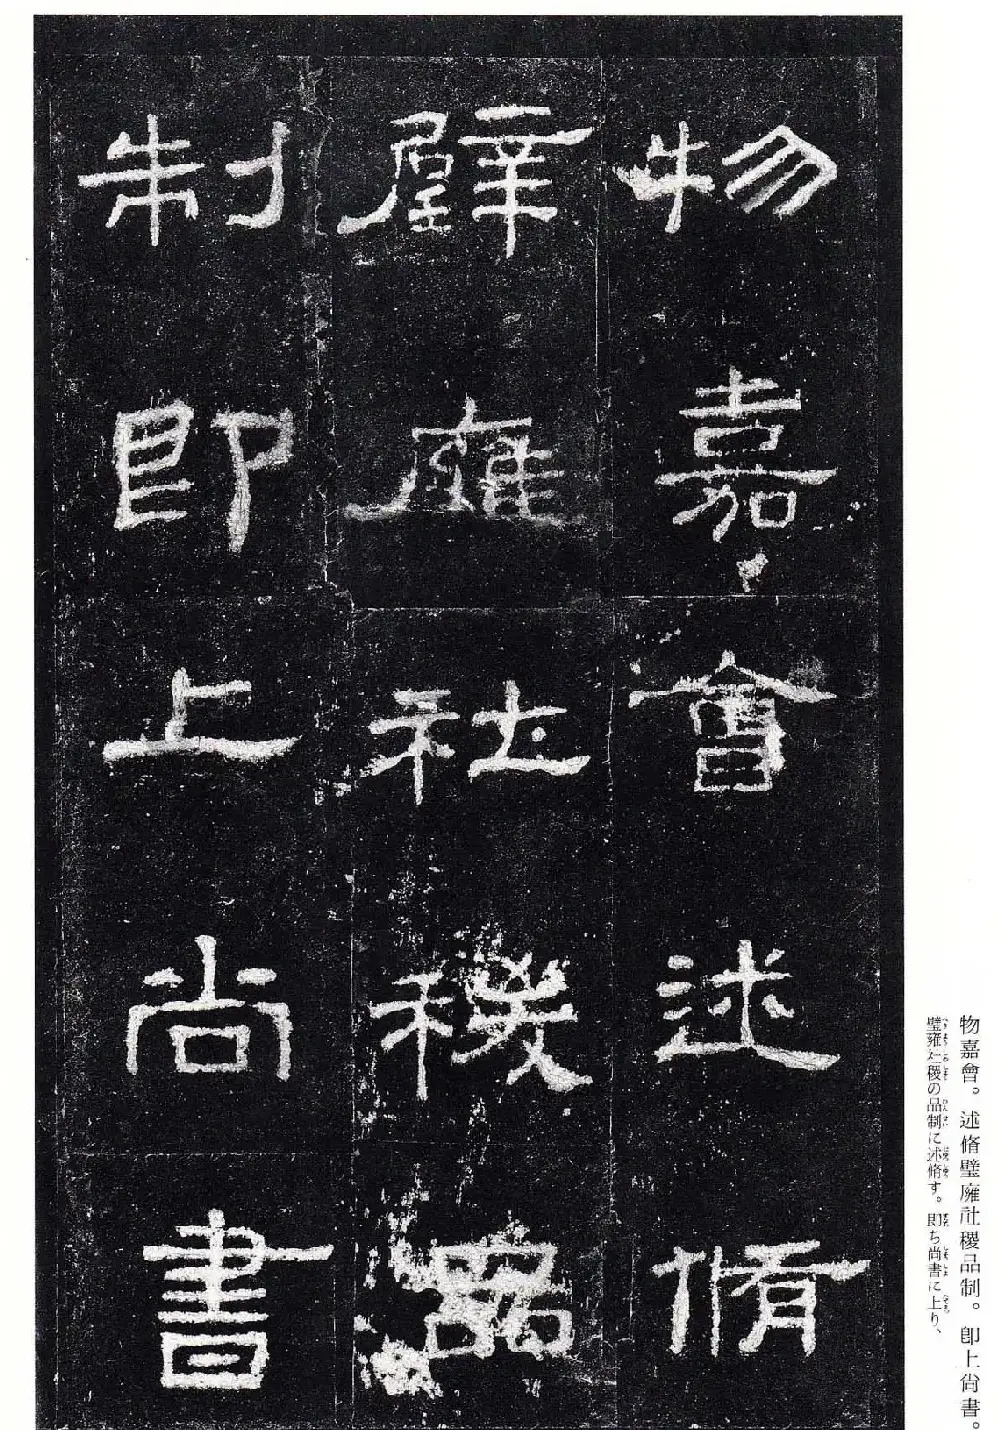 物嘉會述脩
璧廱社稷品
制即上尚書
物嘉會。述脩璧廱社稷品制。即上尚書。
璧雍社稷の品制に述脩す。即ち尚書に上り、